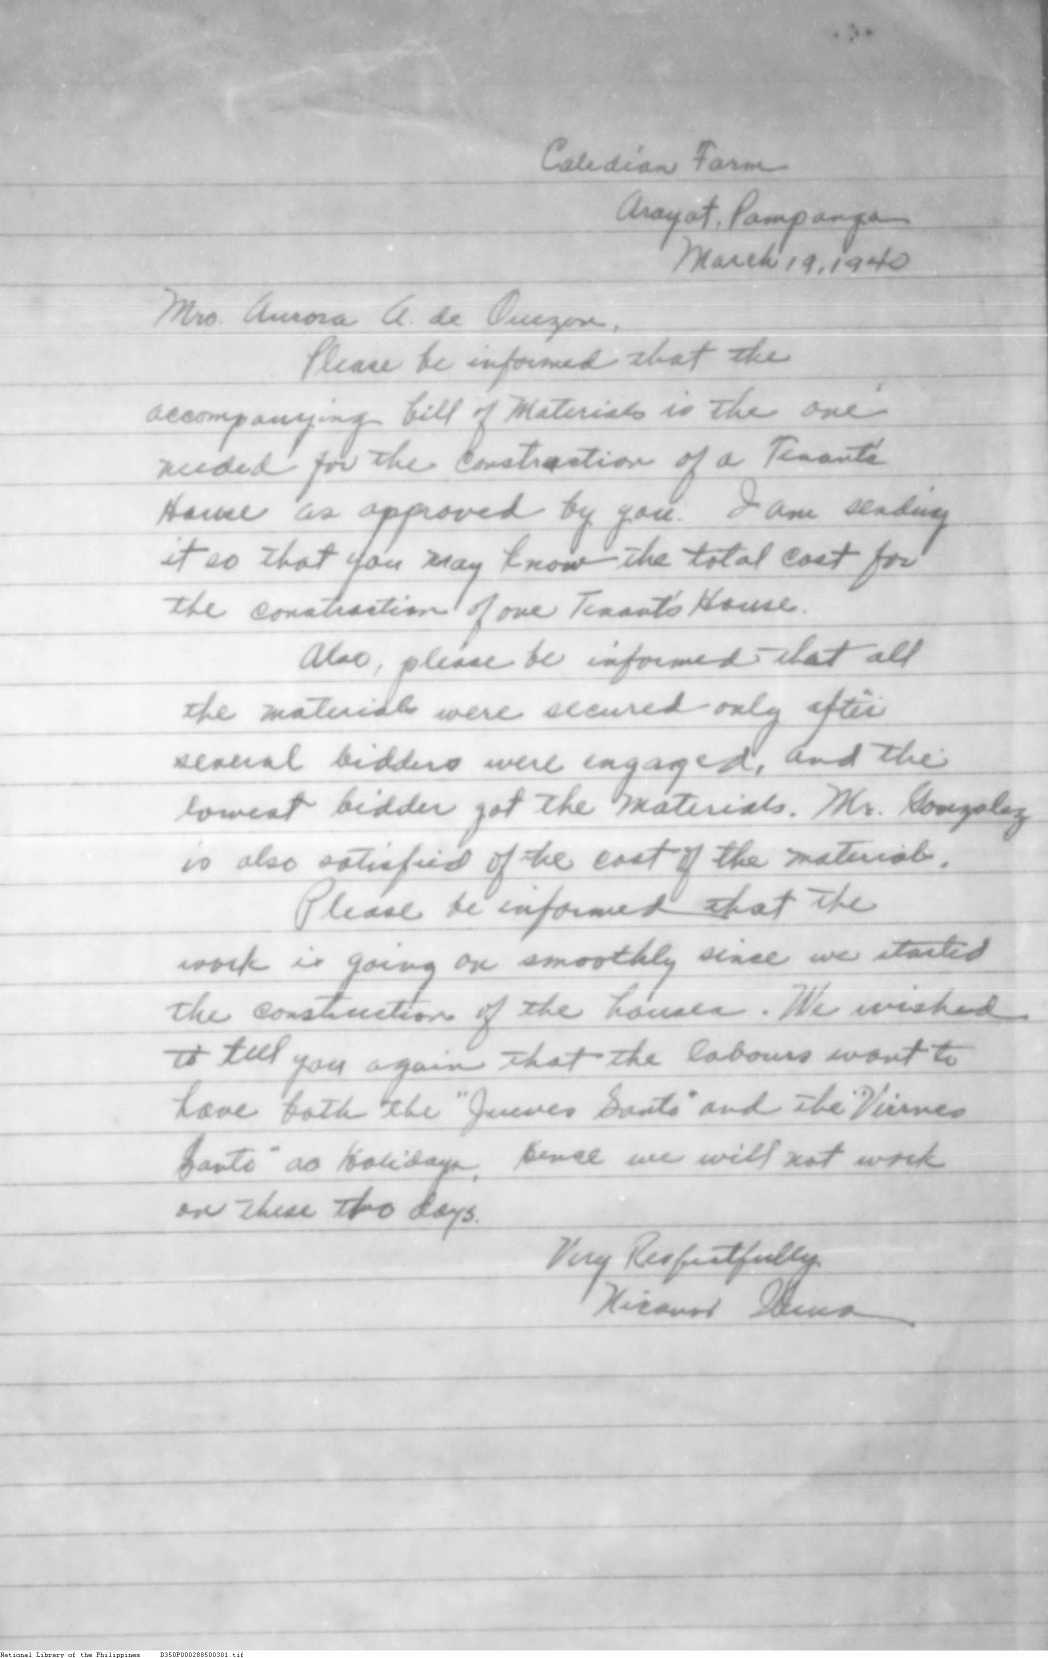 Caledian Farm
Arayat, Pampanga
March 19, 1940
Mrs. Aurora A. de Quezon,
Please be informed that the
accompanying bill of Materials is the one
needed for the construction of a Tenant's
House as approved by you. I am sending
it so that you may know the total cost for
the construction of one Tenant's House.
Also, please be informed that all
the materials were secured only after
several bidders were engaged, and the
lowest bidder got the materials. Mr. Gonzalez
is also satisfied of the cost of the materials.
Please be informed that the
work is going on smoothly since we started
the construction of the houses. We wished
to tell you again that the labours want to
have both the "Jueves Santo" and the "Viernes
Santo" as Holidays, hence we will not work
on these two days.
Very Respectfully
Nicanor
National Library of the Philippines D350P000288500301.tif